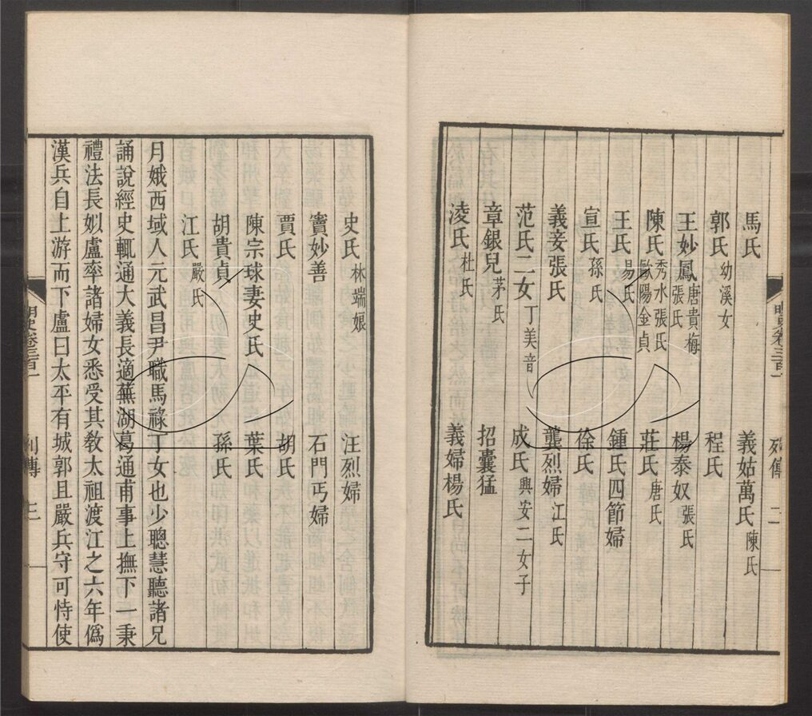 明史卷三百一 列傳 二
馬氏 義姑萬氏 陳氏
郭氏 幼溪女 程氏
王妙鳳 唐貴梅 張氏 楊泰奴 張氏
陳氏 秀水張氏 歐陽金貞 莊氏 唐氏
王氏 易氏 鍾氏四節婦
宣氏 孫氏 徐氏
義妾張氏 龔烈婦 江氏
范氏二女 丁美音 成氏 興安二女子
章銀兒 茅氏 招囊猛
凌氏 杜氏 義婦楊氏
史氏 林端娘 汪烈婦
竇妙善 石門丐婦
賈氏 胡氏
陳宗球妻史氏 葉氏
胡貴貞 孫氏
江氏 嚴氏
月娥西域人元武昌尹職馬祿丁女也少聰慧聽諸兄
誦說經史輒通大義長適蕪湖葛通甫事上撫下一秉
禮法長姒盧率諸婦女悉受其教太祖渡江之六年僞
漢兵自上游而下盧曰太平有城郭且嚴兵守可恃使
明史卷三百一 列傳 三